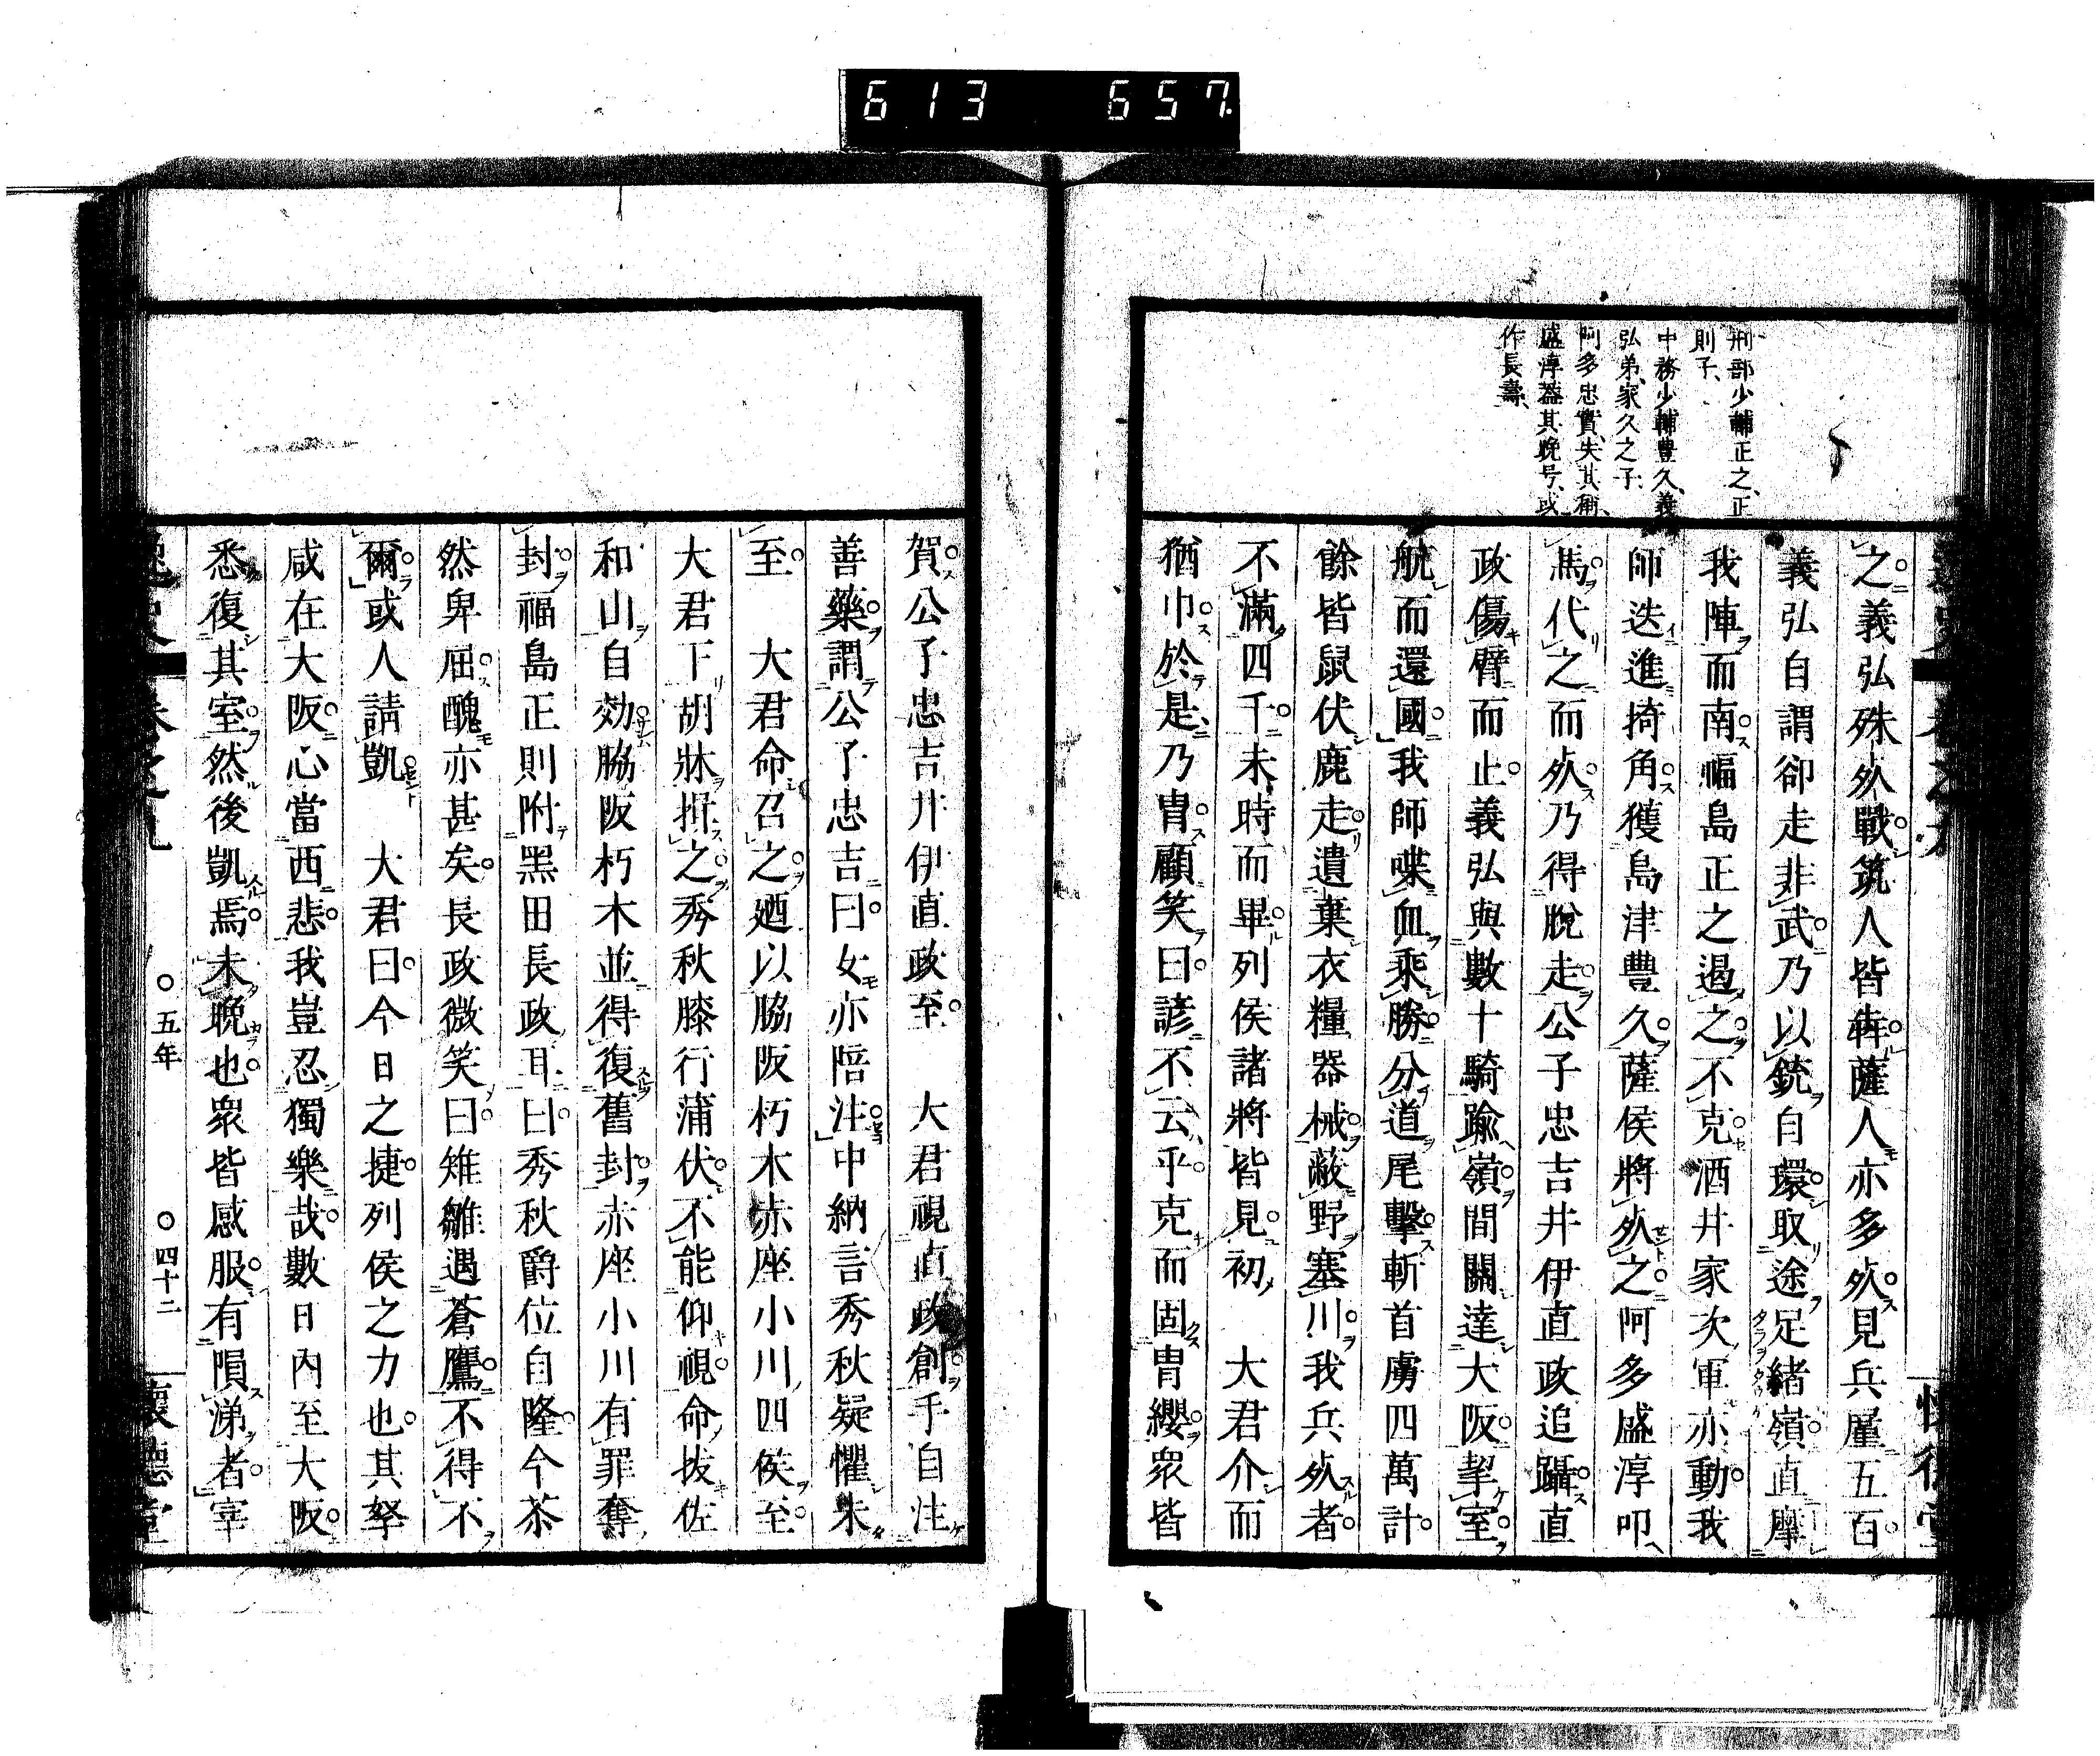 613 657
刑部少輔正之、正
則子、
中務少輔豊久、義
弘弟家久之子、
阿多忠實、失其稱、
盛淳蓋其晩号、或
作長壽、
之義弘殊死戰筑人皆犇薩人亦多死見兵厪五百
義弘自謂卻走非武乃以銃自環取途足緒嶺直摩
我陣而南福島正之遏之不克酒井家次軍亦動我
師迭進掎角獲島津豊久薩侯將死之阿多盛淳叩
馬代之而死乃得脫走公子忠吉井伊直政追躡直
政傷臂而止義弘與數十騎踰嶺間關達大阪挈室
航而還國我師喋血乘勝分道尾擊斬首虜四萬計
餘皆鼠伏鹿走遺棄衣糧器械蔽野塞川我兵死者
不滿四千未時而畢列侯諸將皆見初　大君介而
猶巾於是乃冑顧笑曰諺不云乎克而固冑纓眾皆
賀公子忠吉井伊直政至　大君視直政創手自注
善藥謂公子忠吉曰女亦陪注中納言秀秋疑懼未
至　大君命召之廼以脇阪朽木赤座小川四侯至
大君下胡牀揖之秀秋膝行蒲伏不能仰視命拔佐
和山自効脇阪朽木並得復舊封赤座小川有罪奪
封福島正則附黑田長政耳曰秀秋爵位自隆今茶
然卑屈醜亦甚矣長政微笑曰雉雛遇蒼鷹不得不
爾或人請凱　大君曰今日之捷列侯之力也其孥
咸在大阪心當西悲我豈忍獨樂哉數日內至大阪
悉復其室然後凱焉未晚也眾皆感服有隕涕者宰
五年
四十二
懷德堂